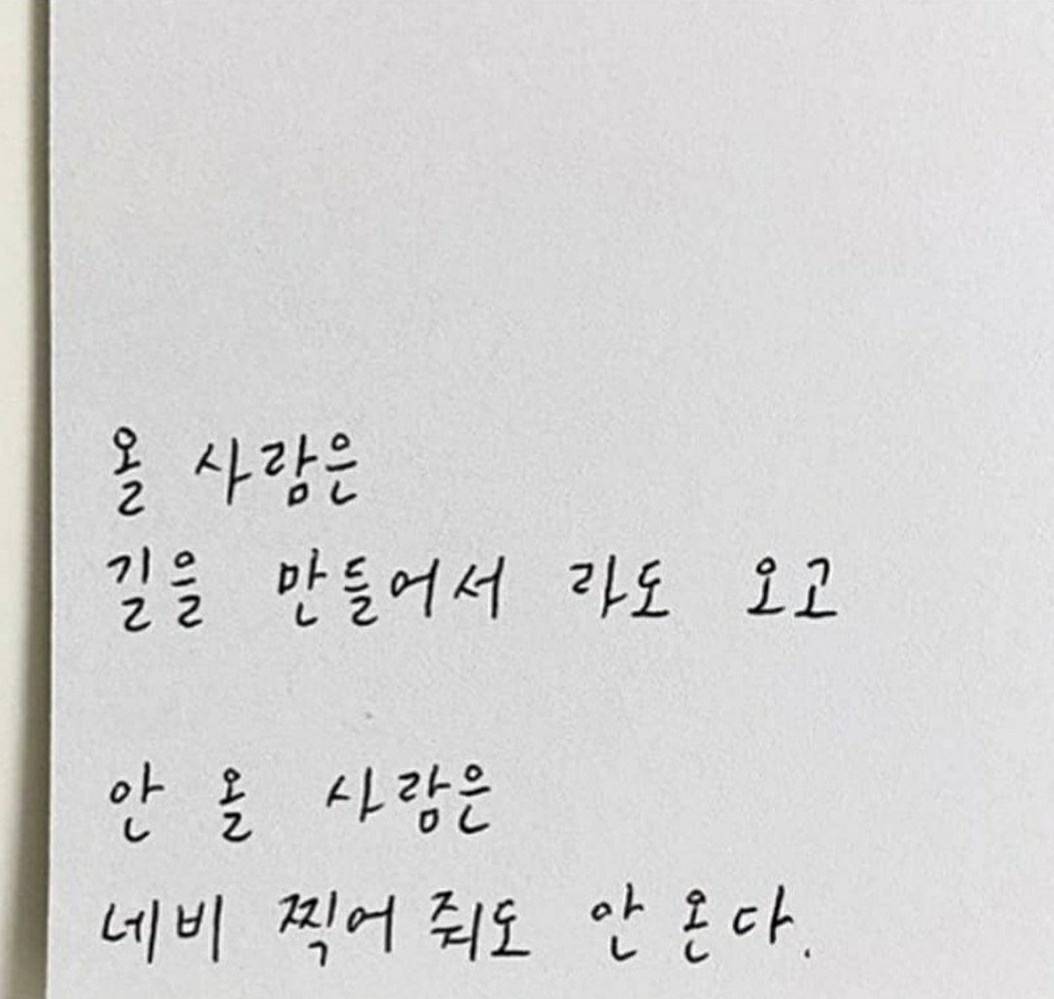 올 사람은
길을 만들어서 라도 오고
안 올 사람은
네비 찍어 줘도 안 온다.